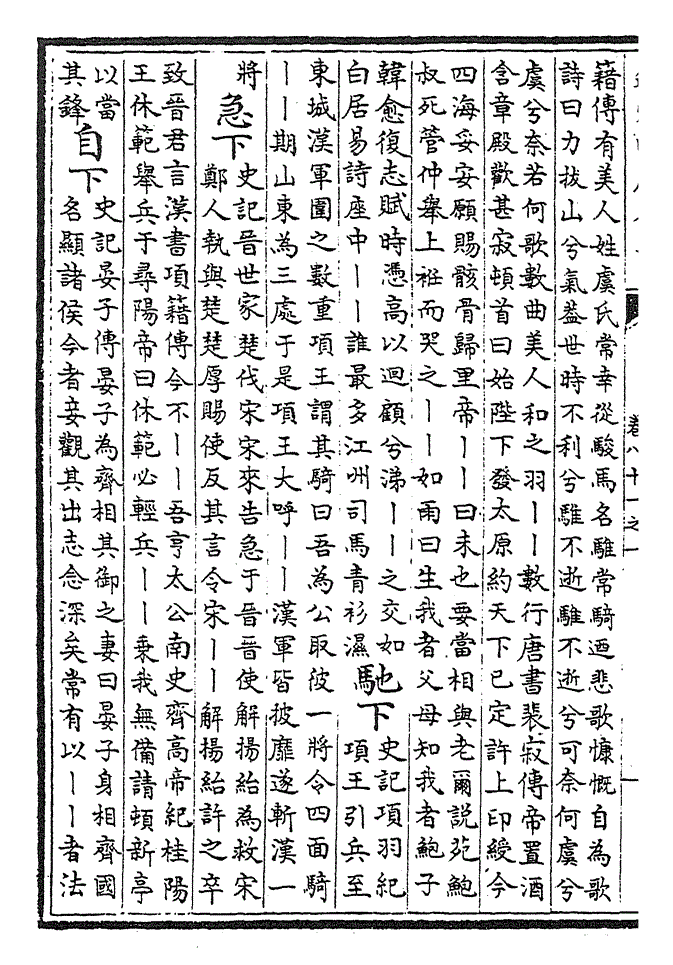 卷八十一之一
籍傳有美人姓虞氏常幸從駿馬名騅常騎迺悲歌慷慨自為歌
詩曰力拔山兮氣葢世時不利兮騅不逝騅不逝兮可奈何虞兮
虞兮奈若何歌數曲美人和之羽丨丨數行唐書裴寂傳帝置酒
含章殿歡甚寂頓首曰始陛下發太原約天下已定許上印綬今
四海妥安願賜骸骨歸里帝丨丨曰未也要當相與老爾說苑鮑
叔死管仲舉上袵而哭之丨丨如雨曰生我者父母知我者鮑子
韓愈復志賦時憑高以迴顧兮涕丨丨之交如
白居易詩座中丨丨誰最多江州司馬青衫濕
馳下
史記項羽紀
項王引兵至
東城漢軍圍之數重項王謂其騎曰吾為公取彼一將令四面騎
丨丨期山東為三處于是項王大呼丨丨漢軍皆披靡遂斬漢一
將
急下
史記晉世家楚伐宋宋來告急于晉晉使解揚紿為救宋
鄭人執與楚楚厚賜使反其言令宋丨丨解揚紿許之卒
致晉君言漢書項籍傳今不丨丨吾亨太公南史齊高帝紀桂陽
王休範舉兵于尋陽帝曰休範必輕兵丨丨乗我無備請頓新亭
以當
其鋒
自下
史記晏子傳晏子為齊相其御之妻曰晏子身相齊國
名顯諸侯今者妾觀其出志念深矣常有以丨丨者法